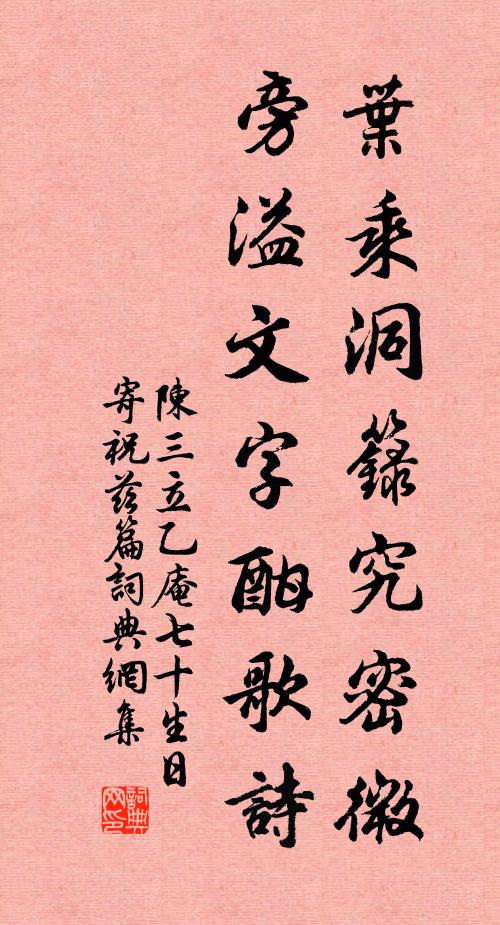 葉乘洞籙究密微
旁溢文字酣歌詩
陳三立乙庵七十生日
寄祝茲篇詞典網集
詞典网印